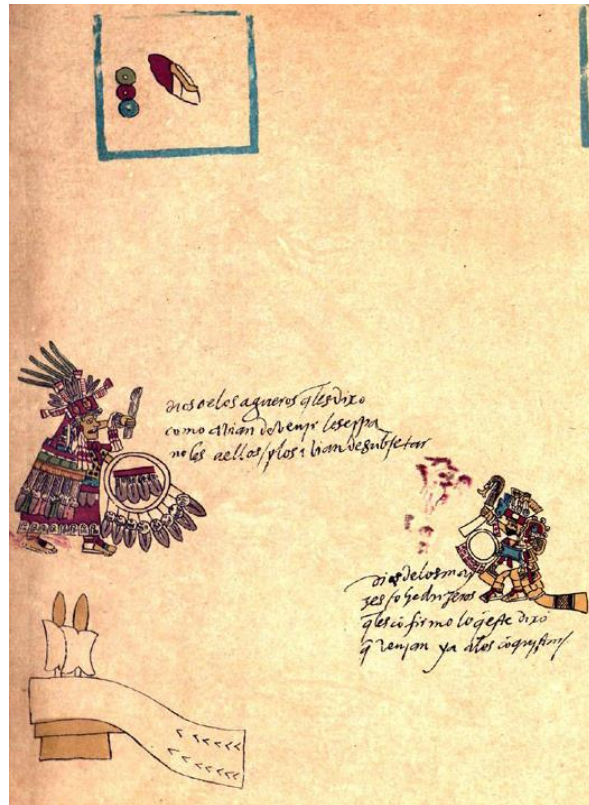 dios de los agueros q̃ les dixo
como avian de venir los espa
noles a ellos / y los avian de subjetar
dios de los ma
zes / o hechizeros
q̃ les cõfirmo lo q̃ este dixo
q̃ venian ya a los